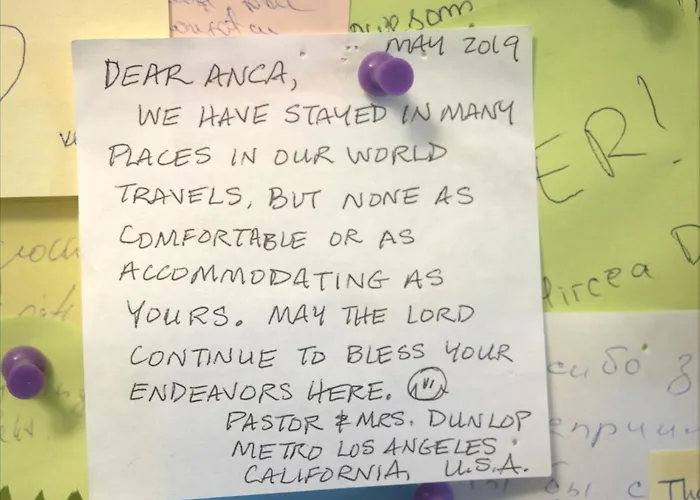 MAY 2019
DEAR ANCA,
WE HAVE STAYED IN MANY
PLACES IN OUR WORLD
TRAVELS, BUT NONE AS
COMFORTABLE OR AS
ACCOMMODATING AS
YOURS. MAY THE LORD
CONTINUE TO BLESS YOUR
ENDEAVORS HERE.
PASTOR & MRS. DUNLOP
METRO LOS ANGELES
CALIFORNIA, U.S.A.
ER!
Mircea D